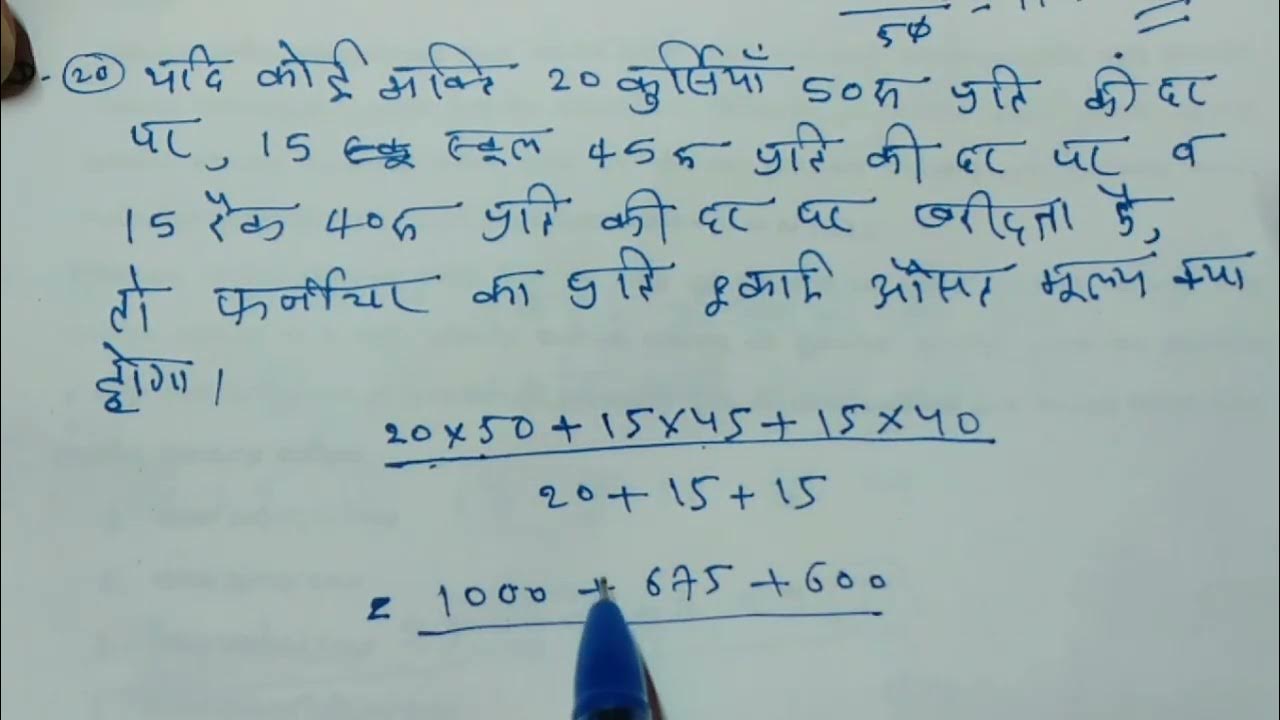 5φ
(20) यदि कोई व्यक्ति 20 कुर्सियाँ 50रु प्रति की दर
पर, 15 स्टूल 45 रु प्रति की दर पर व
15 रैक 40रु प्रति की दर पर खरीदता है,
तो फर्नीचर का प्रति इकाई औसत मूल्य क्या
होगा।
20×50+15×45+15×40
20+15+15
= 1000 + 675 + 600